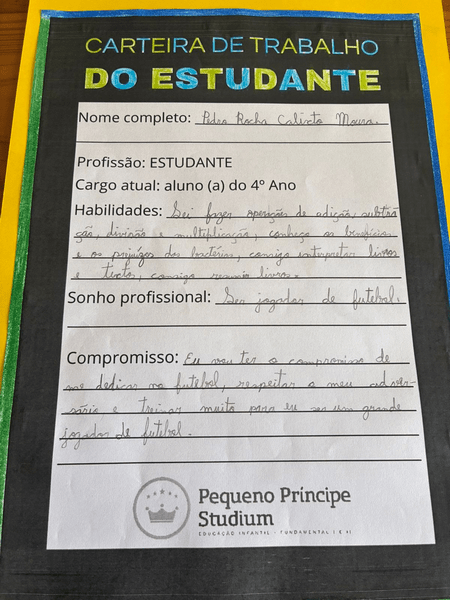 CARTEIRA DE TRABALHO
DO ESTUDANTE
Nome completo: Pedro Rocha Calixto Moura.
Profissão: ESTUDANTE
Cargo atual: aluno (a) do 4º Ano
Habilidades: Sei fazer operações de adição, subtra
ção, divisão e multiplicação, conheço os benefícios
e os prejuízos das bactérias, consigo interpretar livros
e textos, consigo resumir livros.
Sonho profissional: Ser jogador de futebol.
Compromisso: Eu vou ter o compromisso de
me dedicar no futebol, respeitar o meu adver-
sário e treinar muito para eu ser um grande
jogador de futebol.
Pequeno Príncipe
Studium
EDUCAÇÃO INFANTIL - FUNDAMENTAL I E II